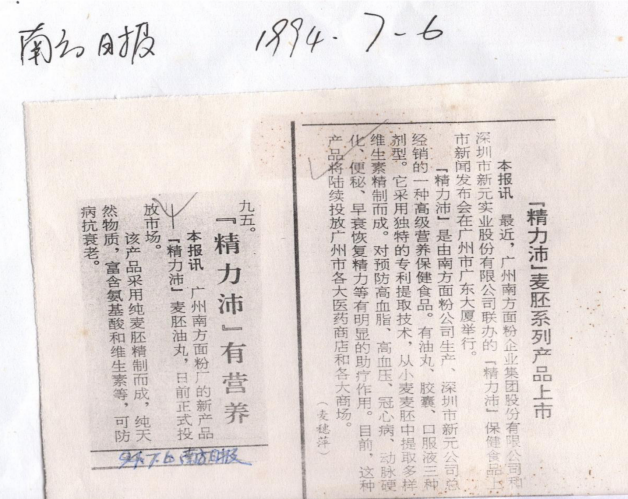 南方日报 1994.7-6
『精力沛』麦胚系列产品上市
本报讯 最近，广州南方面粉企业集团股份有限公司和
深圳市新元实业股份有限公司联办的『精力沛』保健食品上
市新闻发布会在广州市广东大厦举行。
『精力沛』是由南方面粉公司生产、深圳市新元公司总
经销的一种高级营养保健食品。有油丸、胶囊、口服液三种
剂型。它采用独特的专利提取技术，从小麦麦胚中提取多样
维生素精制而成。对预防高血脂、高血压、冠心病、动脉硬
化、便秘、早衰恢复精力等有明显的助疗作用。目前，这种
产品将陆续投放广州市各大医药商店和各大商场。
（麦穗萍）
九五。
『精力沛』有营养
本报讯 广州南方面粉厂的新产品
『精力沛』麦胚油丸，日前正式投
放市场。
该产品采用纯麦胚精制而成，纯天
然物质，富含氨基酸和维生素等，可防
病抗衰老。
94.7.6 南方日报